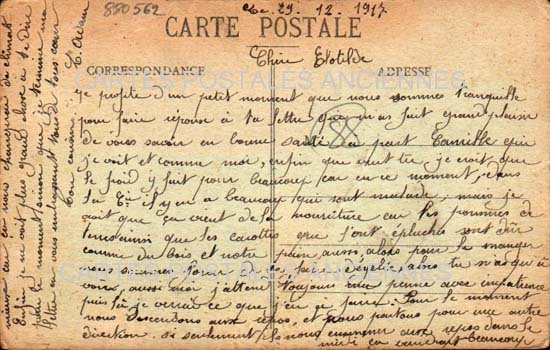 850562
Le 29. 12. 1917
CARTE POSTALE
Chère Clotilde
CORRESPONDANCE
ADRESSE
CARTES POSTALES ANCIENNES
Je profite d'un petit moment que nous sommes tranquille
pour faire réponse à ta lettre que m'as fait grand plaisir
de vous savoir en bonne santé à part Camille
je voit et comme moi, enfin que veut tu, je croit que
le froid y fait pour beaucoup car en ce moment, dans
la Cie il y en a beaucoup qui sont malade, mais je
croit que ça vient de la nourriture car les pommes de
terre ainsi que les carottes que l'on épluche sont dur
comme du bois, et notre pain aussi, alors pour le manger
nous sommes forcé de le faire dégelé, alors tu n'as qu'à
voir, aussi moi j'attend toujours ma perme avec impatience
puis là je verrai ce que j'en ai à faire. Pour le moment
nous descendons aux repos, et nous partons pour une autre
direction si seulement ils nous emmener aux repos dans le
midi ça vaudrait beaucoup
mieux car ça nous changerai de climat
Enfin je ne voit plus grand chose à te dire
pour le moment
lettre en vous embrassant tous de tout cœur
Ton cousin